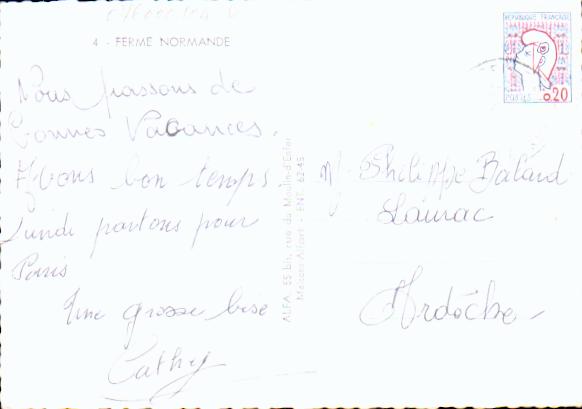 4 - FERME NORMANDE
RÉPUBLIQUE FRANÇAISE
POSTES 0,20
Nous passons de
bonnes Vacances.
Avons bon temps
Lundi partons pour
Paris
Une grosse bise
Cathy
ALFA, 55 bis, rue du Moulin-d'Enfer
Maisons-Alfort - ENT. 62-45
M Philippe Balard
Laurac
Ardèche